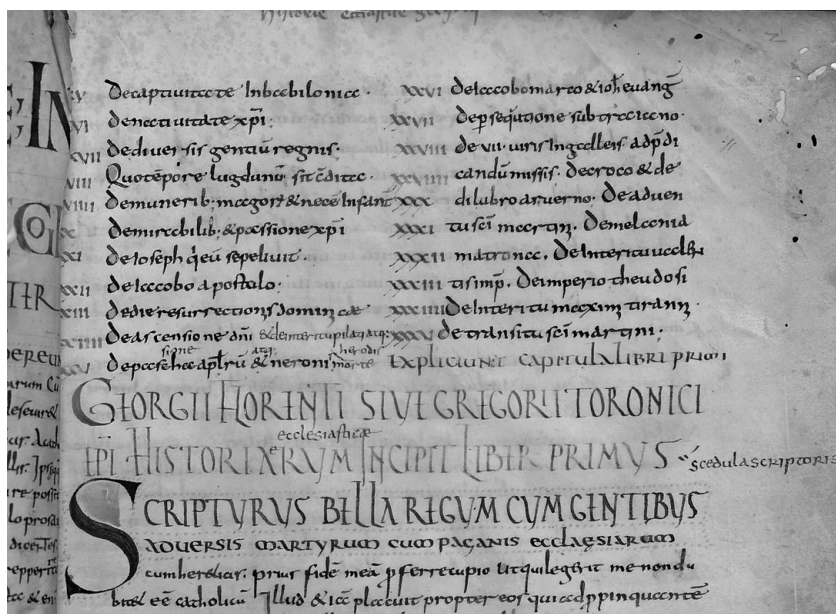 Historie eccłastice
XV De captivitate In babilonia.
XVI De nativitate xp̄i.
XVII De diversis gentiū regnis.
XVIII Quo tēpore lugdunū sit cōdita.
XVIIII De munerib; magorū & nece Infantū
XX De mirabilib; & passione xp̄i
XXI De Ioseph q̄ eū sepelivit.
XXII De Iacobo apostolo.
XXIII De die resurrectionis dominicae
XXIIII De ascensione dn̄i & de interitu pilati atq;
XXV De passione ap̄lrū & neroni
sione atq; herodis morte
XXVI De Iacobo marco & ioh̄e euanḡ
XXVII De p̄sequtione sub traiano.
XXVIII De VII viris In galleis ad p̄di
XXVIIII candum missis. De croco & de
XXX dilubro arverno. De adven
XXXI tu sc̄i martini. De melania
XXXII matrona. De Interitu valen
XXXIII tis imp̄. De imperio theudosi
XXXIIII De Interitu maximi tiranni
XXXV De transitu sc̄i martini;
EXPLICIUNT CAPITULA LIBRI PRIMI
GEORGII FLORENTI SIVE GREGORII TORONICI
EPI HISTORIARUM INCIPIT LIBER PRIMUS
ecclesiasticae
scedula scriptoris
SCRIPTURUS BELLA REGUM CUM GENTIBUS
ADVERSIS MARTYRUM CUM PAGANIS ECCLAESIARUM
cum hereticis. prius fidē meā p̄ferre cupio ut qui legerit me non du
bitet eē catholicū Illud & iā placuit propter eos qui adp̄pinquante